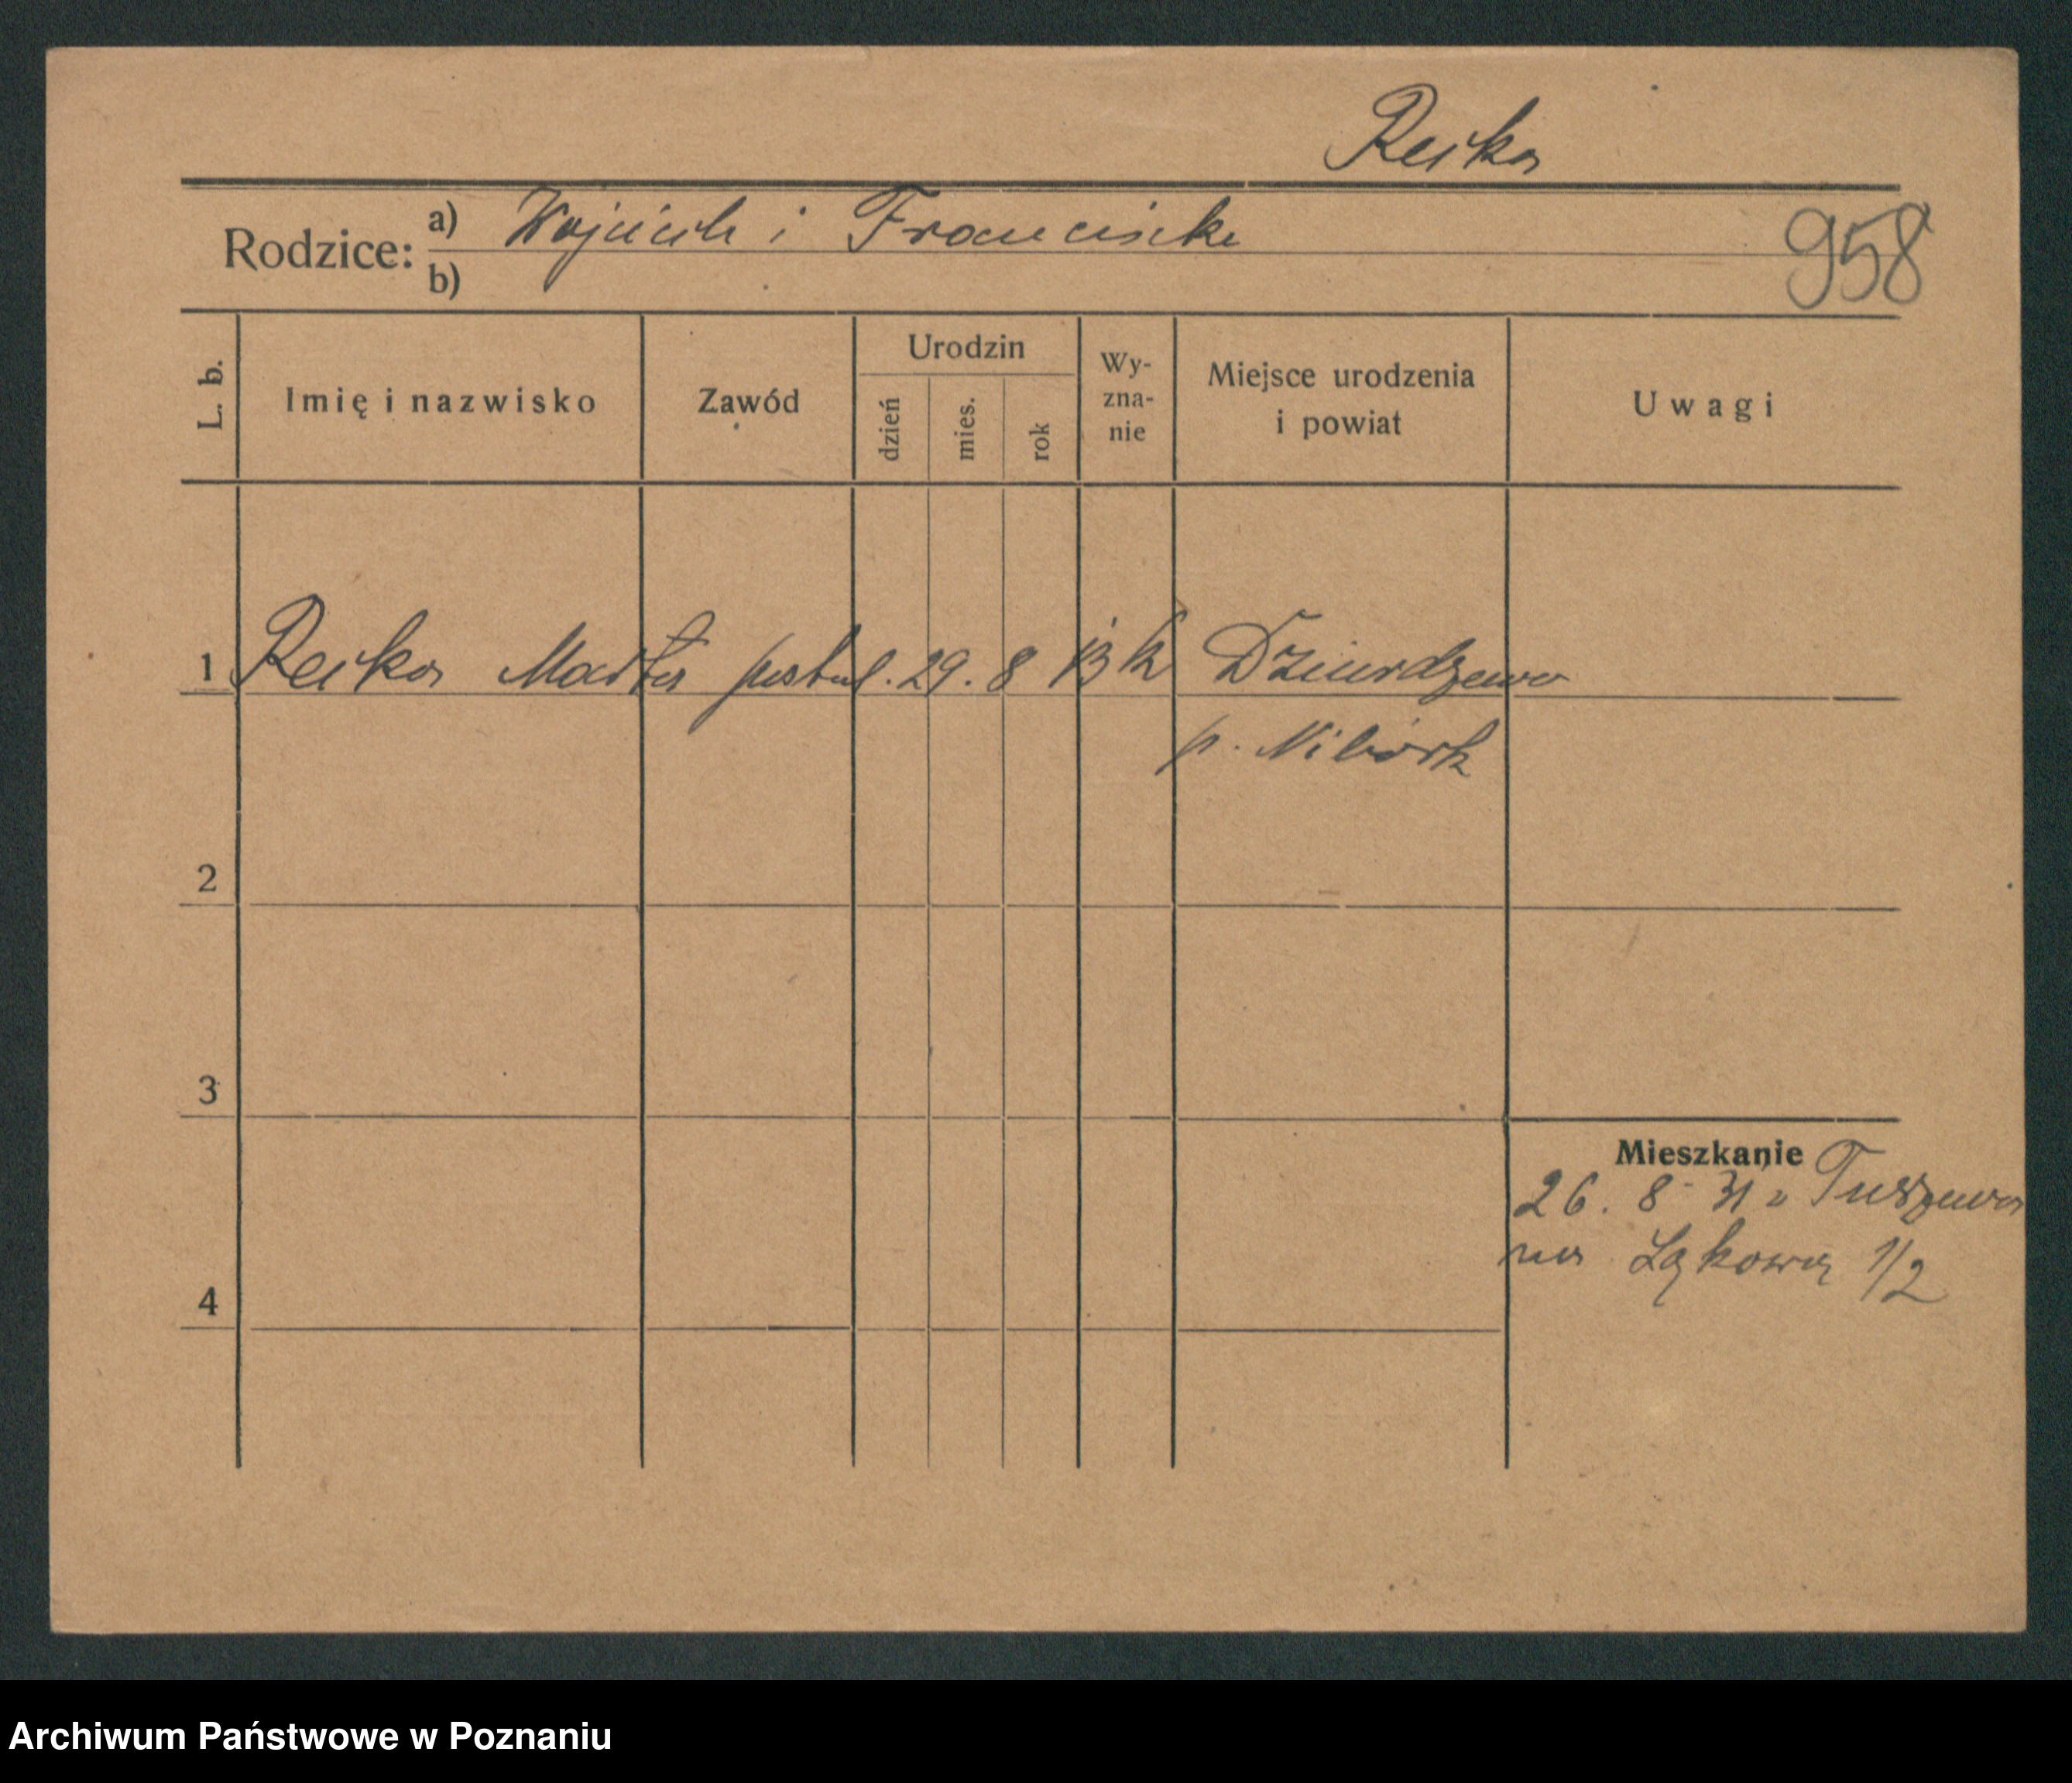 Reika
Rodzice: a) Wojciech i Franciszka
b)
958
L. b. Imię i nazwisko Zawód Urodzin dzień mies. rok Wy-zna-nie Miejsce urodzenia i powiat Uwagi
1 Reika Marta postul. 29. 8 13 k Dziurdzewo
p. Nibork
2
3
Mieszkanie
26. 8 31 z Tuszewa
na Łąkową 1/2
4
Archiwum Państwowe w Poznaniu